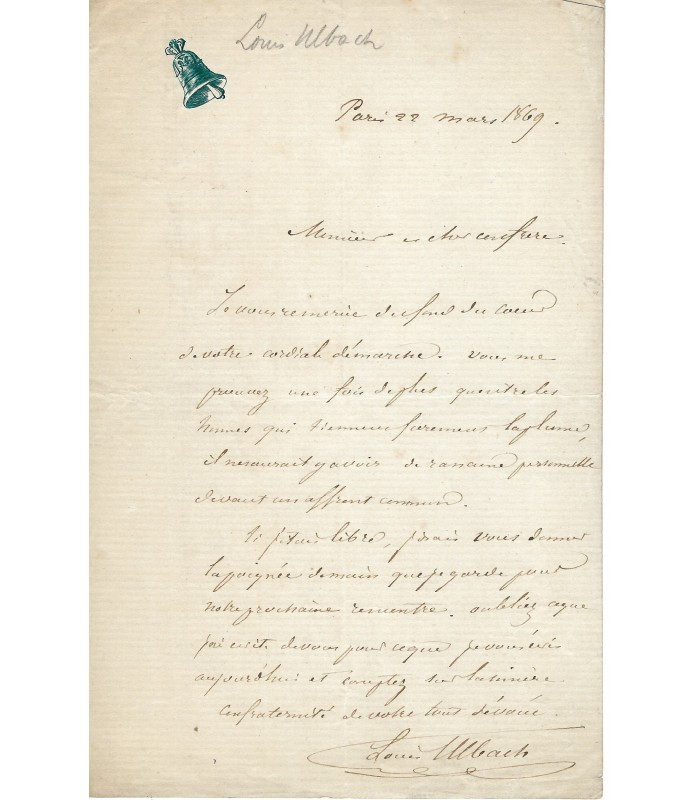 Louis Ulbach
Paris 22 mars 1869.
Monsieur et cher confrere.
Je vous remercie du fond du coeur
de votre cordiale démarche. vous me
prouvez une fois de plus qu'entre les
hommes qui tiennent fierement la plume,
il ne saurait y avoir de rancune personnelle
devant un affront commun.
Si j'étais libre, j'irais vous donner
la poignée de main que je garde pour
notre prochaine rencontre. oubliez ce que
j'ai écrit de vous pour ce que je vous écris
aujourd'hui et comptez sur la sincère
confraternité de votre tout dévoué.
Louis Ulbach